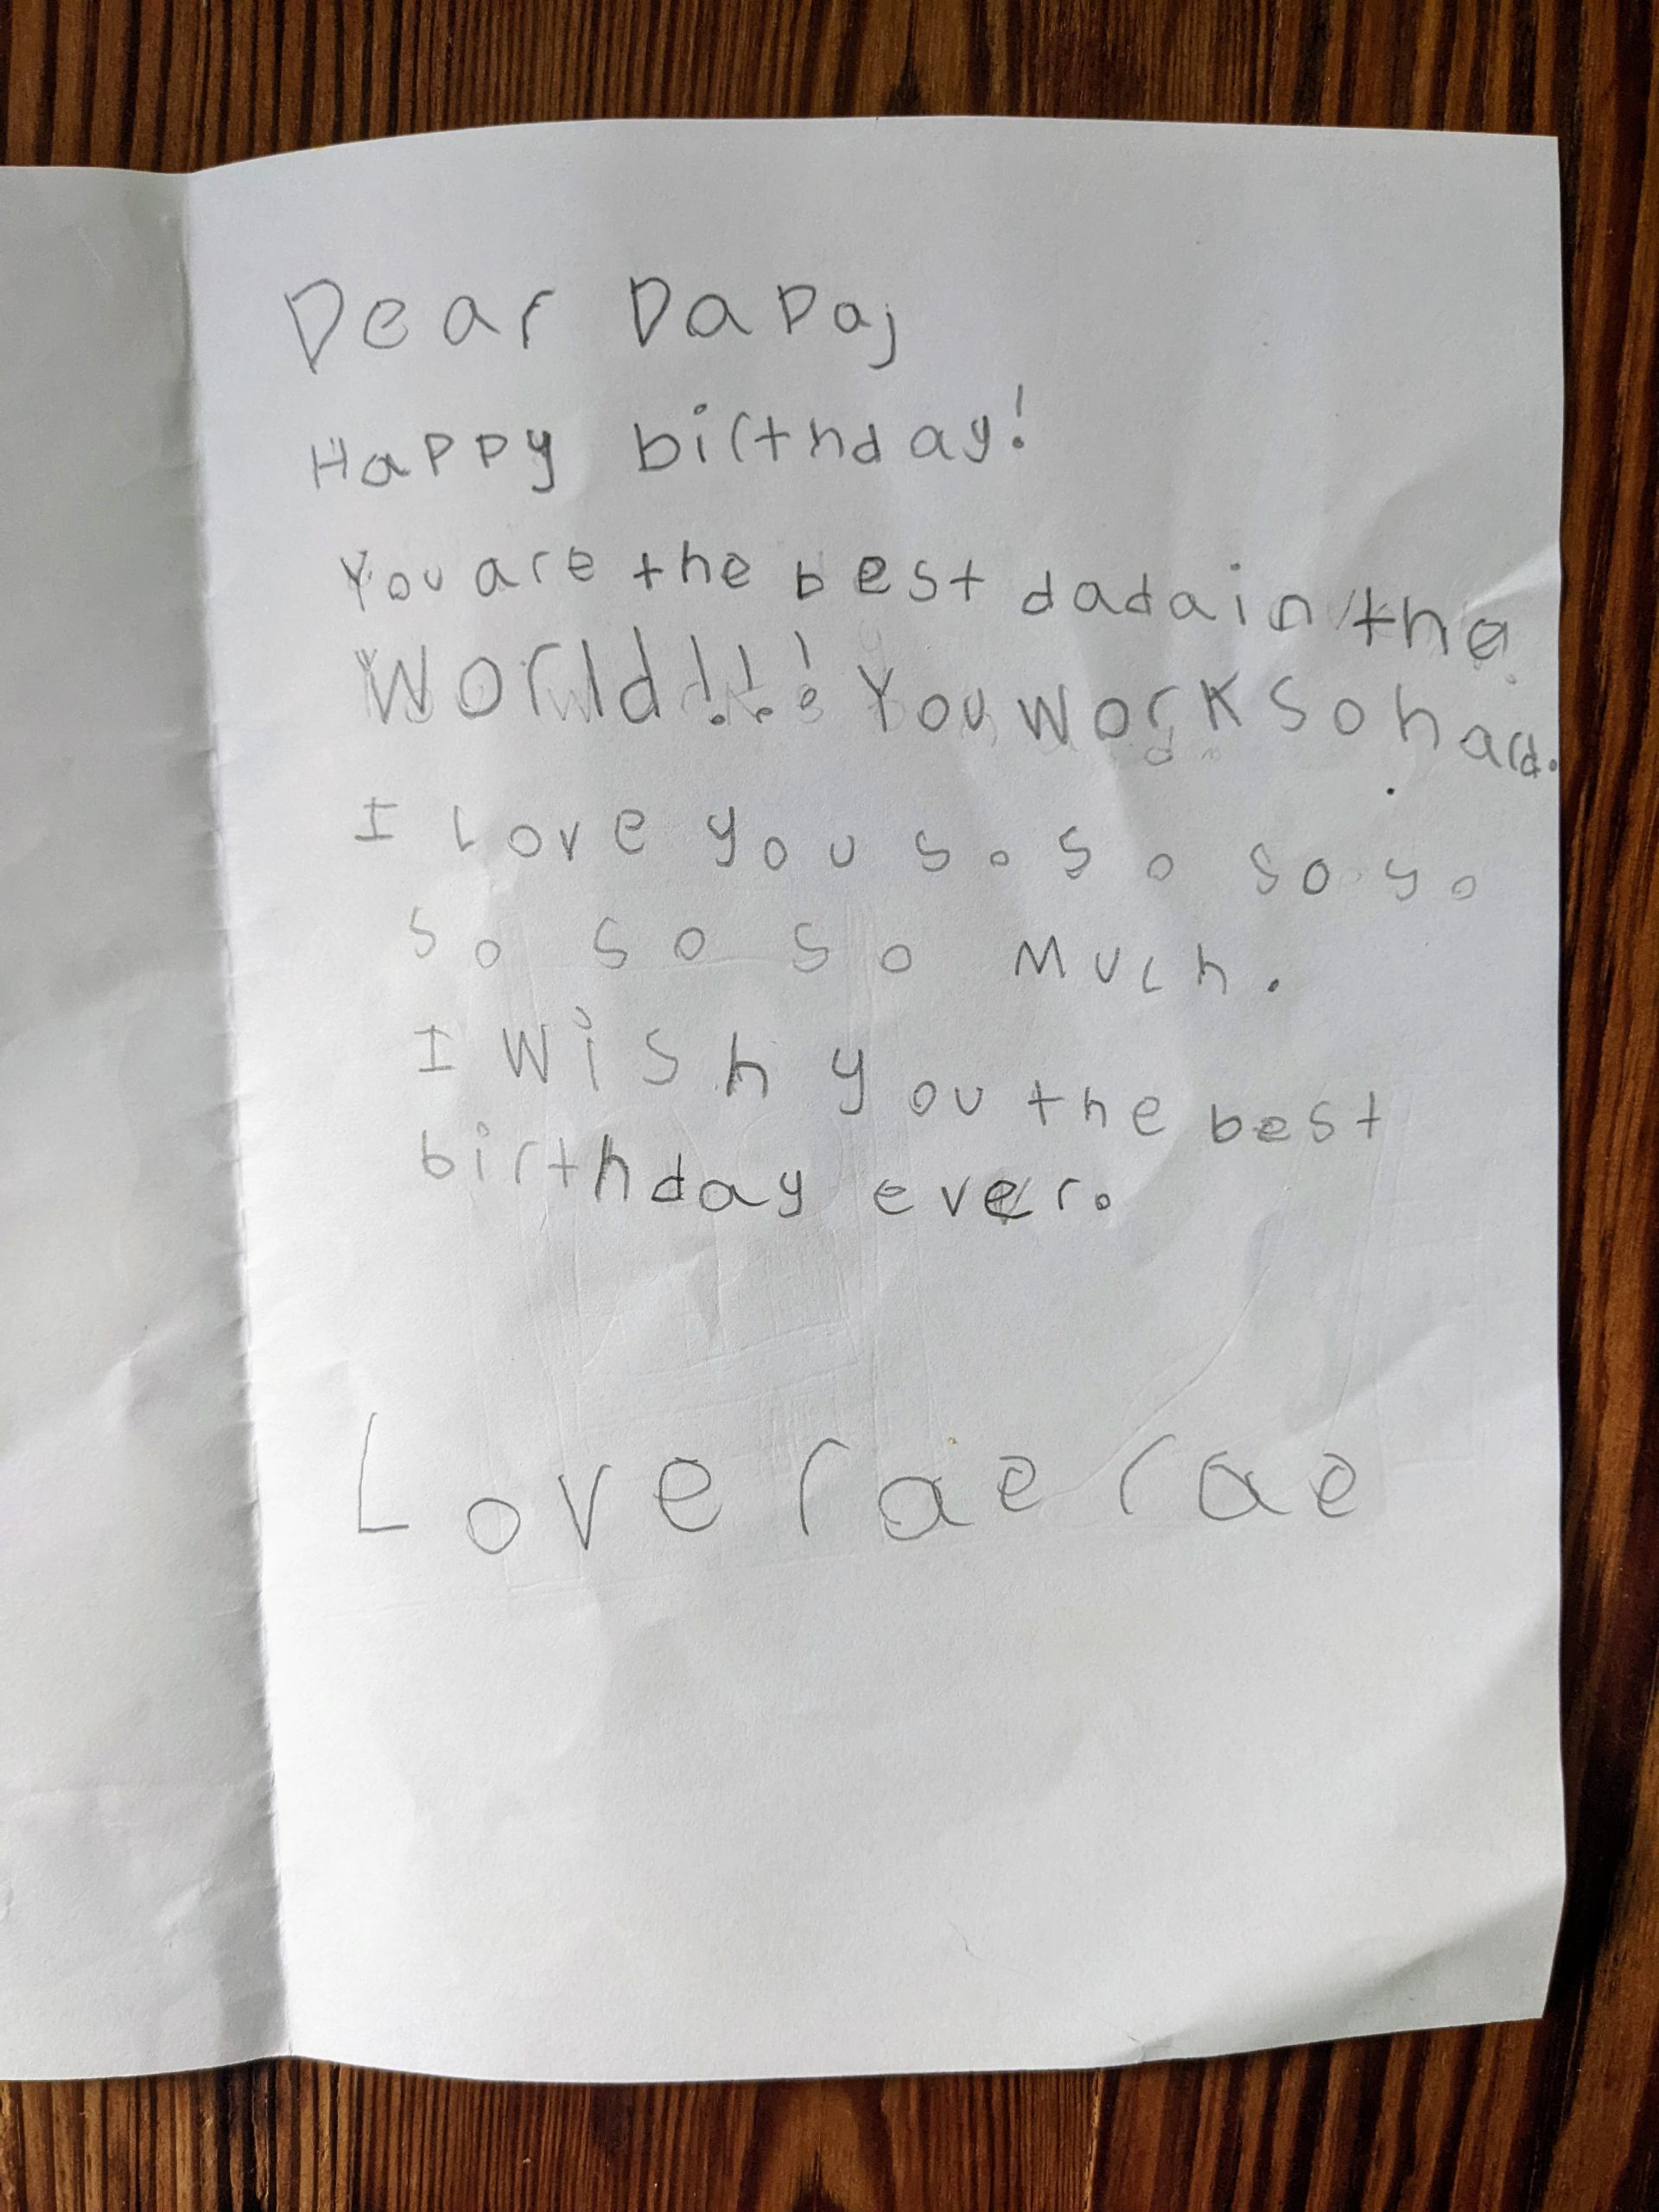 Dear DaDa,
Happy birthday!
You are the best dada in the
World!!! You work so hard.
I love you so so so so
so so so much.
I wish you the best
birthday ever.
Love rae rae